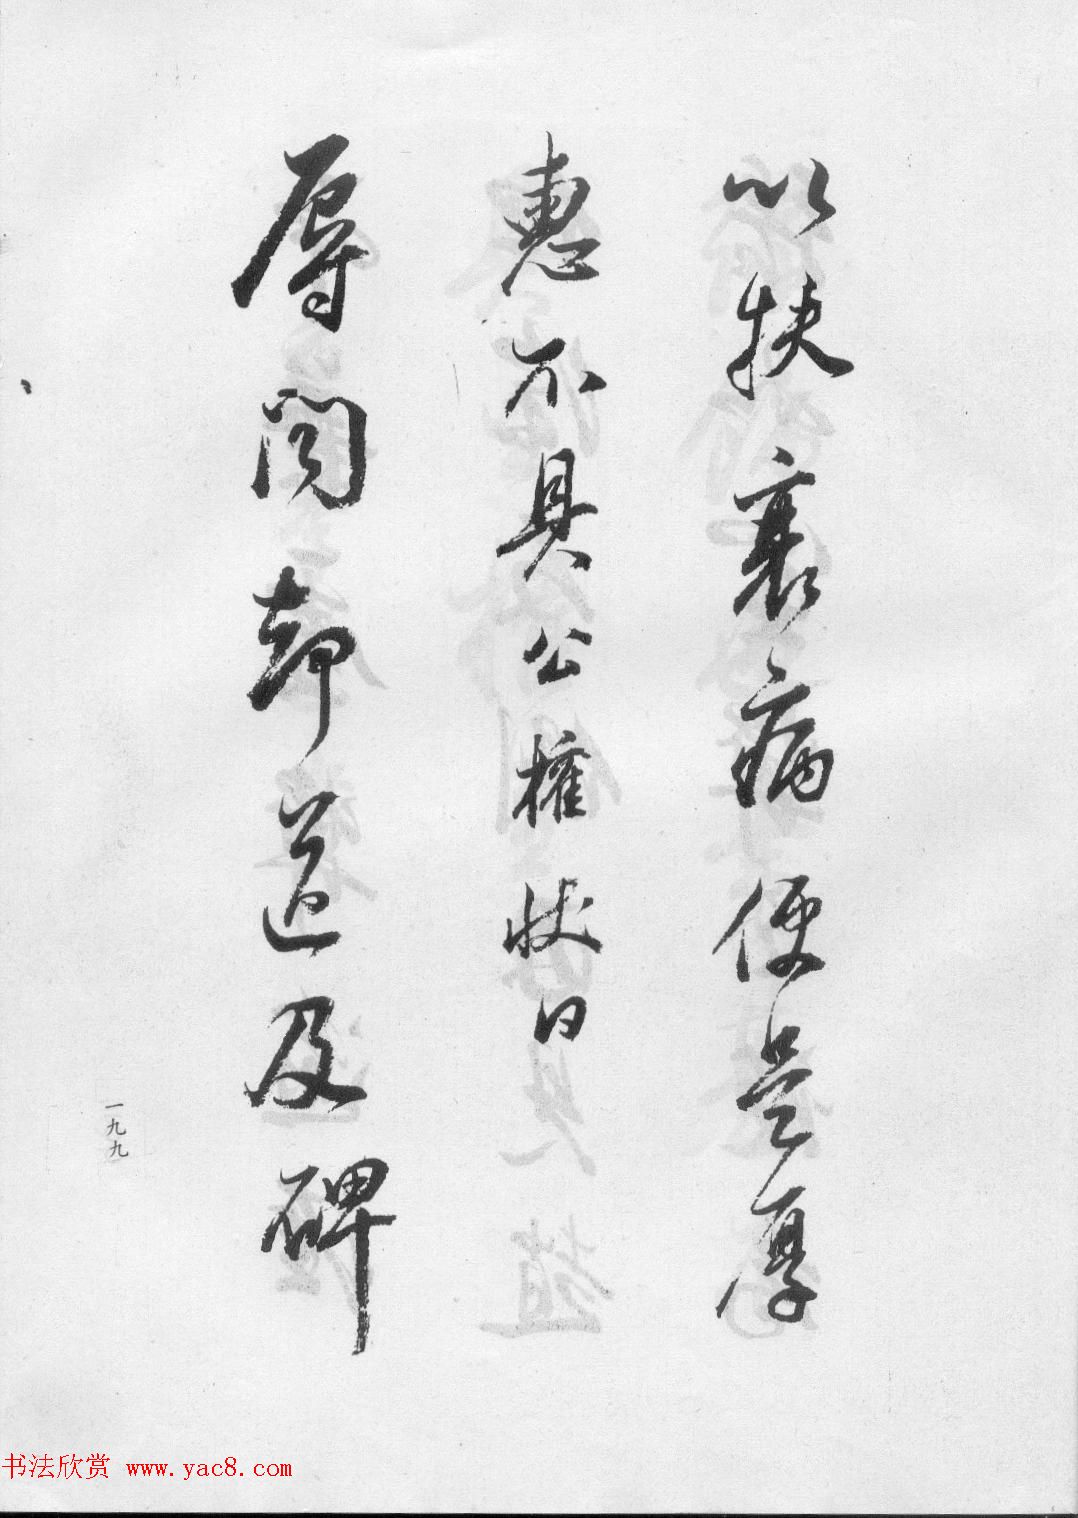 以扶衰病便是厚
惠不具公權狀白
辱問却送及碑
一九九
书法欣赏 www.yac8.com